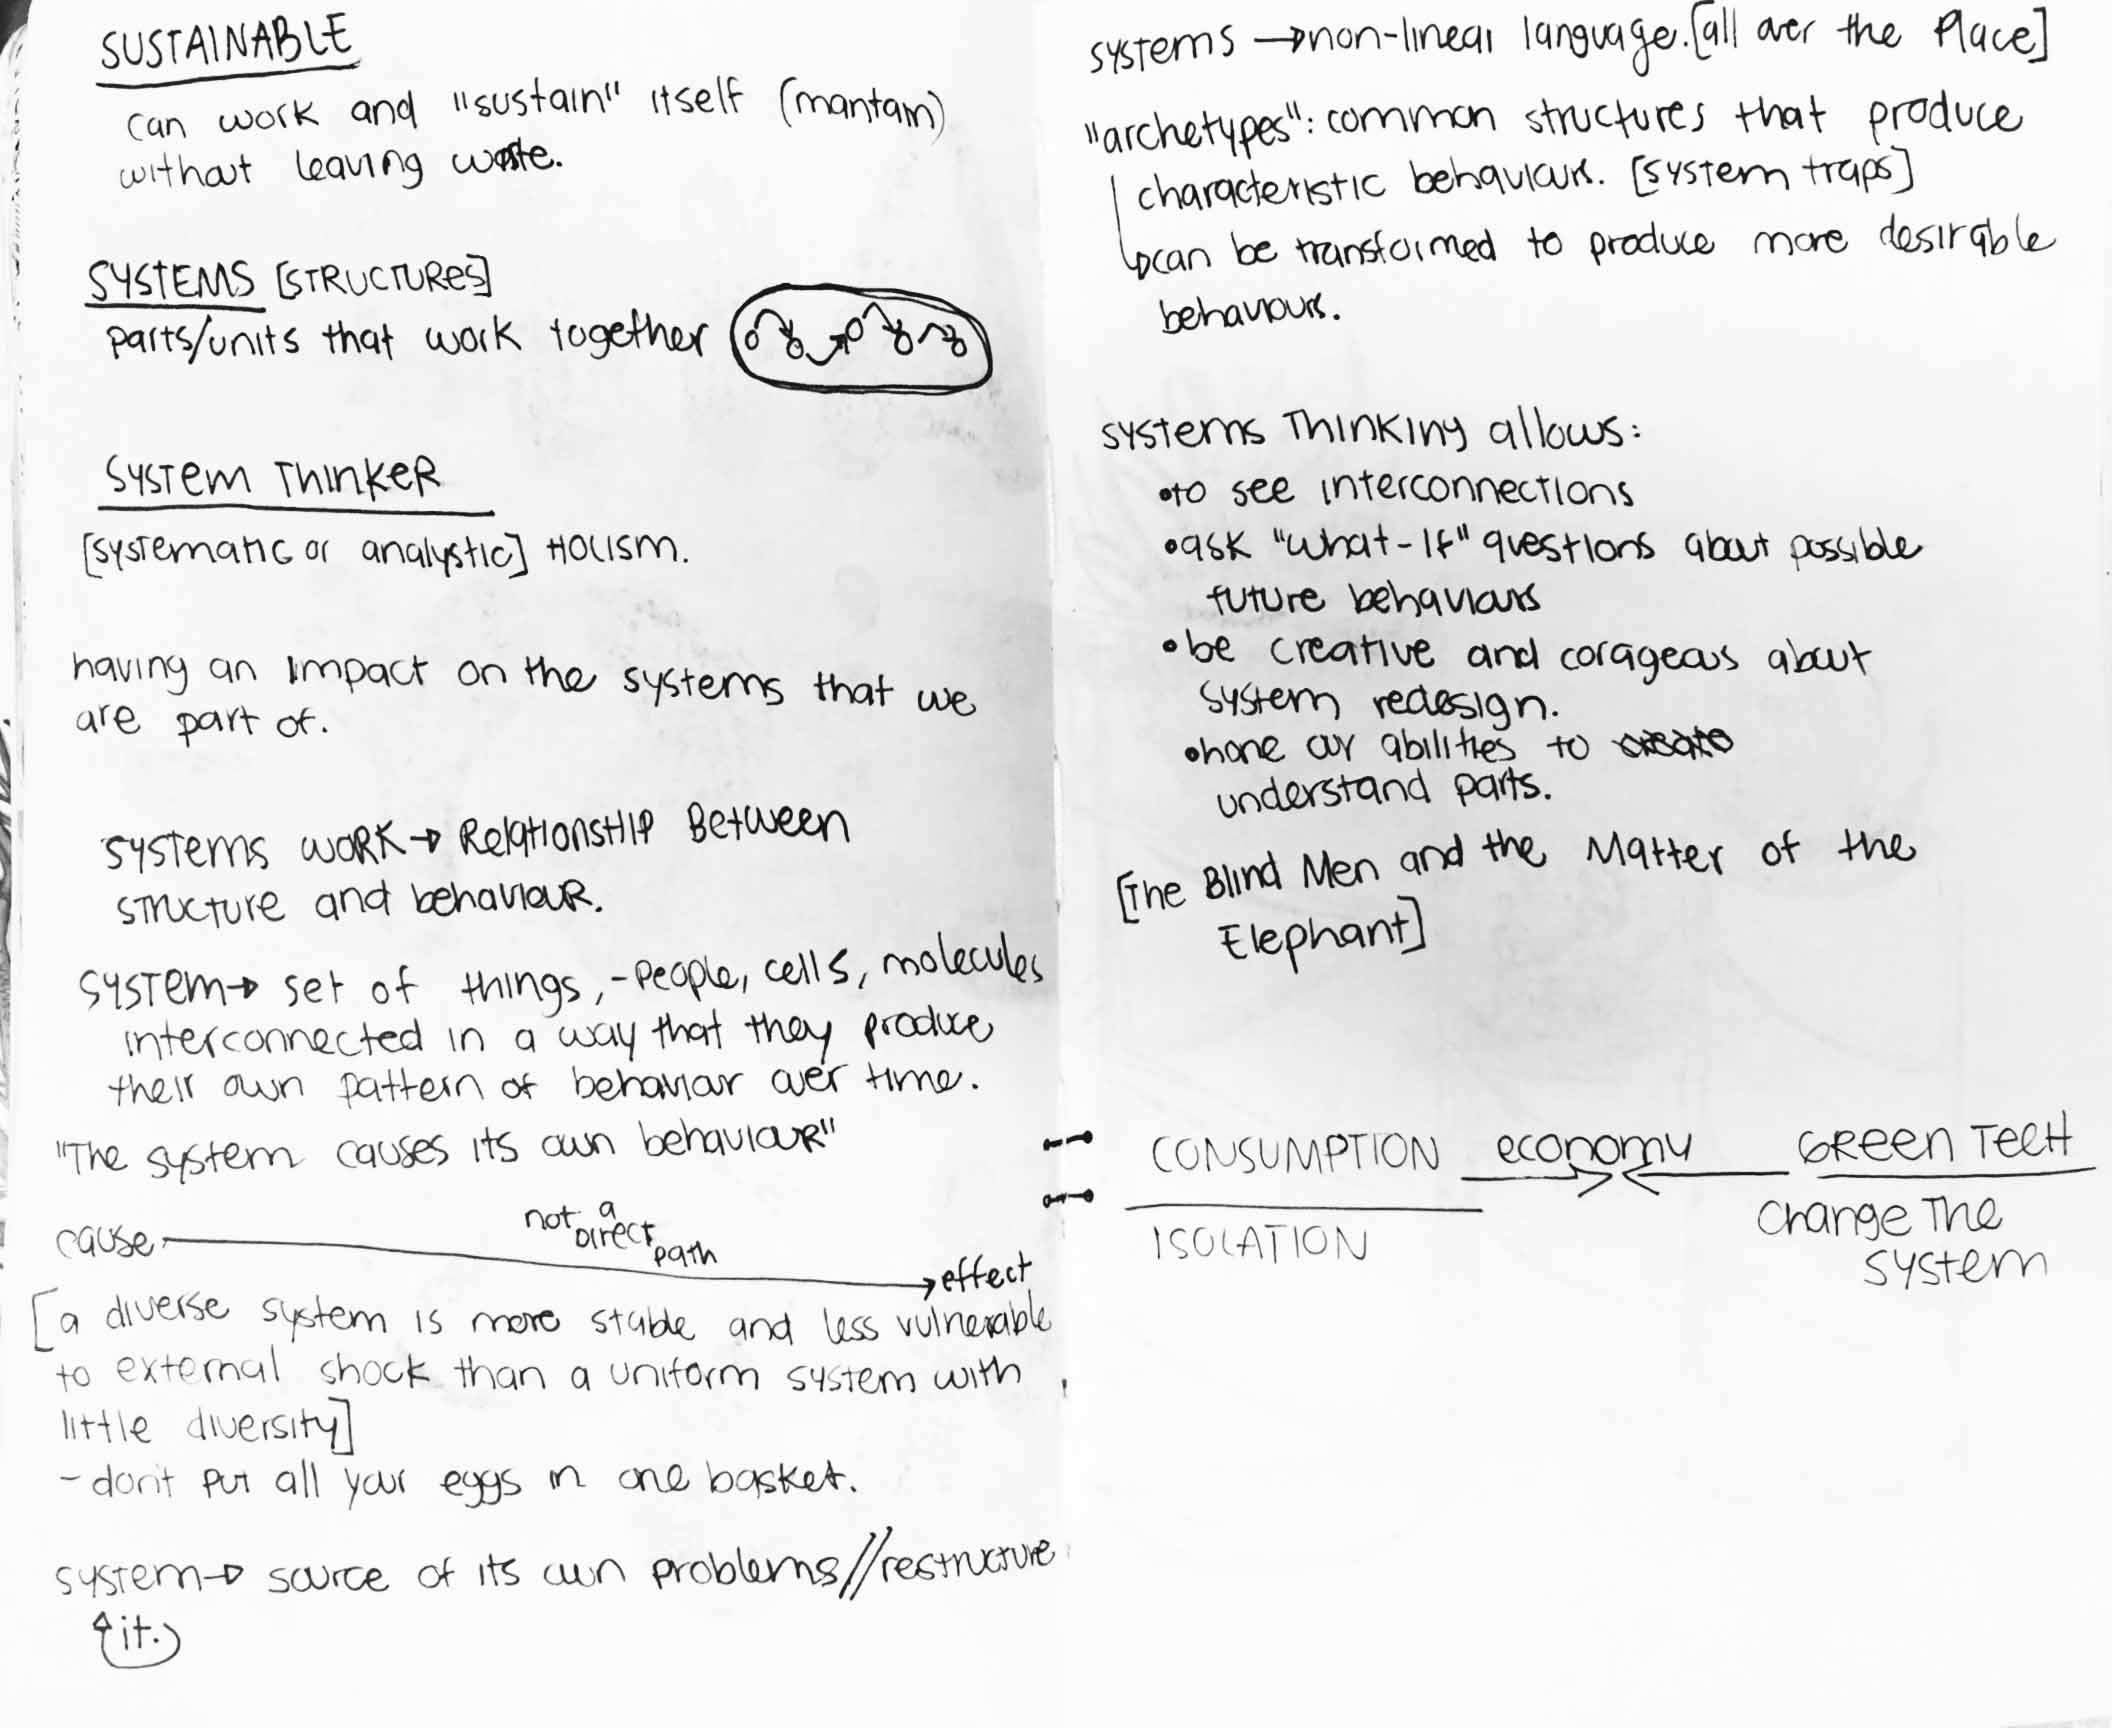 SUSTAINABLE
can work and "sustain" itself (mantain)
without leaving waste.
SYSTEMS [STRUCTURES]
parts/units that work together
SYSTEM THINKER
[systematic or analystic] HOLISM.
having an impact on the systems that we
are part of.
systems work → Relationship Between
structure and behaviour.
system → set of things, - people, cells, molecules
interconnected in a way that they produce
their own pattern of behaviour over time.
"The system causes its own behaviour"
cause → effect
not a
DIRECT
path
[a diverse system is more stable and less vulnerable
to external shock than a uniform system with
little diversity]
- don't put all your eggs in one basket.
system → source of its own problems//restructure
it.
systems → non-linear language. [all over the Place]
"archetypes": common structures that produce
characteristic behaviours. [system traps]
↳ can be transformed to produce more desirable
behaviours.
systems Thinking allows:
• to see interconnections
• ask "what-if" questions about possible
future behaviours
• be creative and corageous about
system redesign.
• hone our abilities to create
understand parts.
[The Blind Men and the Matter of the
Elephant]
CONSUMPTION economy GREEN TECH
ISOLATION
Change The
system